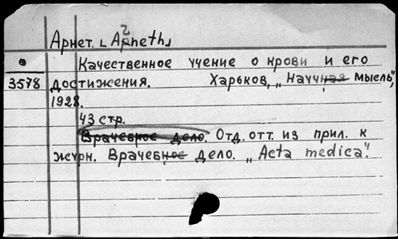 Арнет. [Arneth]
Качественное учение о крови и его
3578 достижения. Харьков, „Научная мысль",
1928.
43 стр.
Врачебное дело. Отд. отт. из прил. к
журн. Врачебное дело. „Acta medica".